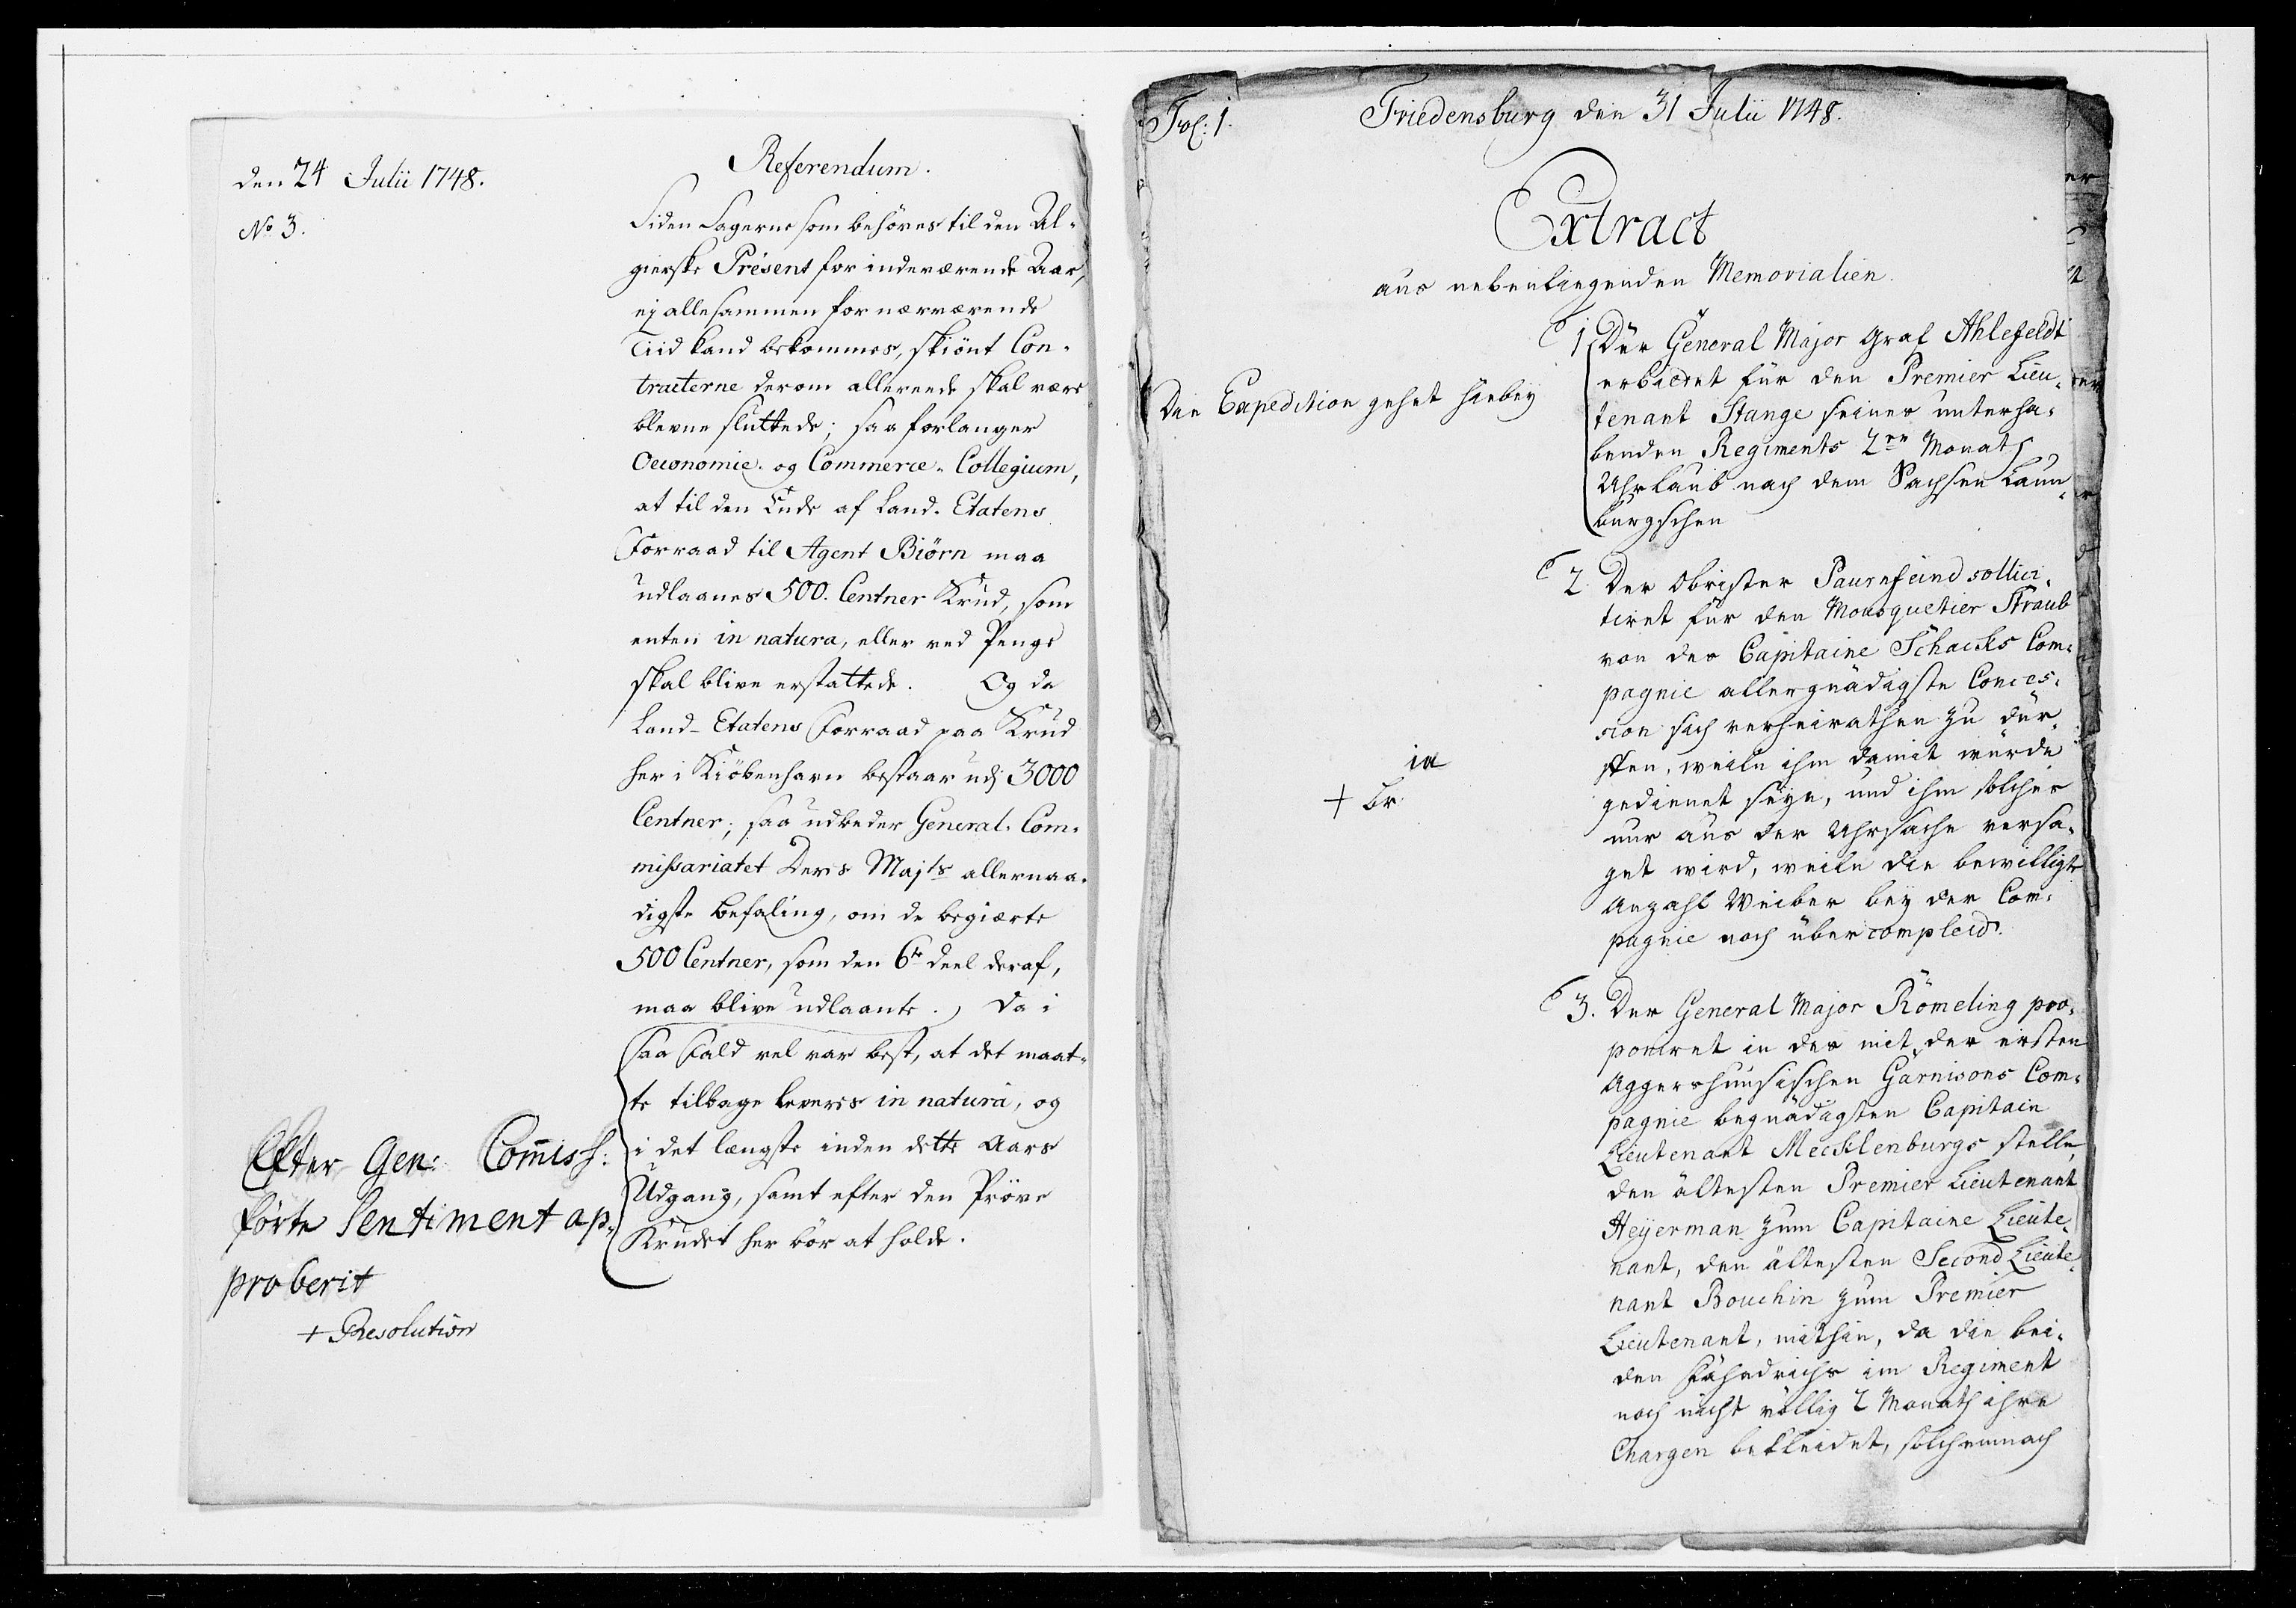 den 24 Julii 1748.
No 3.
Referendum.
Siden Sagerne som behöves til den Al-
gierske Présent for indeværende Aar,
ej allesammen for nærværende
Tiid kand bekommes, skiönt Con-
tracterne derom allereede skal være
blevne sluttede; saa forlanger
Oeconomie- og Commerce-Collegium,
at til den Ende af Land-Etatens
Forraad til Agent Biörn maa
udlaanes 500. Centner Krud, som
enten in natura, eller ved Penge
skal blive erstattede. Og da
Land-Etatens Forraad paa Krud
her i Kiöbenhavn bestaar udj 3000
Centner; saa udbeder General-Com-
missariatet Deris Majts allernaa-
digste befaling, om de begiærte
500 Centner, som den 6te deel deraf,
maa blive udlaante. Da i
saa Fald vel var best, at det maat-
te tilbage leveres in natura, og
i det længste inden dette Aars
Udgang, samt efter den Pröve
Krudet her bör at holde.
Efter Gen: Commiss:
förte Sentiment ap-
proberit
+ Resolution
Fol: 1.
Friedensburg den 31 Julii 1748.
Extract
aus nebenliegenden Memorialien.
Die Expedition gehet hiebey
1. Der General Major Graf Ahlefeldt
erbiedet für den Premier Lieu-
tenant Stange seines unterha-
benden Regiments 2en Monath
Uhrlaub nach dem Sachsen Lauen-
burgschen
in
+ Br
2. Der Obrister Paurnfeind sollici-
tiret für den Mousquetier Straub
von des Capitaine Schacks Com-
pagnie allergnädigste Conces-
sion sich verheirathen zu dür-
ffen, weiln ihm damit würde
gedienet seyn, und ihm solches
nur aus der Uhrsache versa-
get wird, weiln die bewilligte
Anzahl Weiber bey der Com-
pagnie noch über compleid.
3. Der General Major Römeling pro-
poniret in des mit der ersten
Aggershuusischen Garnisons Com-
pagnie begnädigten Capitain
Lieutenant Mecklenburgs stelle,
den ältesten Premier Lieutenant
Heyerman zum Capitaine Lieute-
nant, den ältesten Second Lieute-
nant Bouchin zum Premier
Lieutenant, mithin, da die bei-
den Fähndrichs im Regiment
noch nicht völlig 2 Monath ihre
Chargen bekleidet, solchemnach